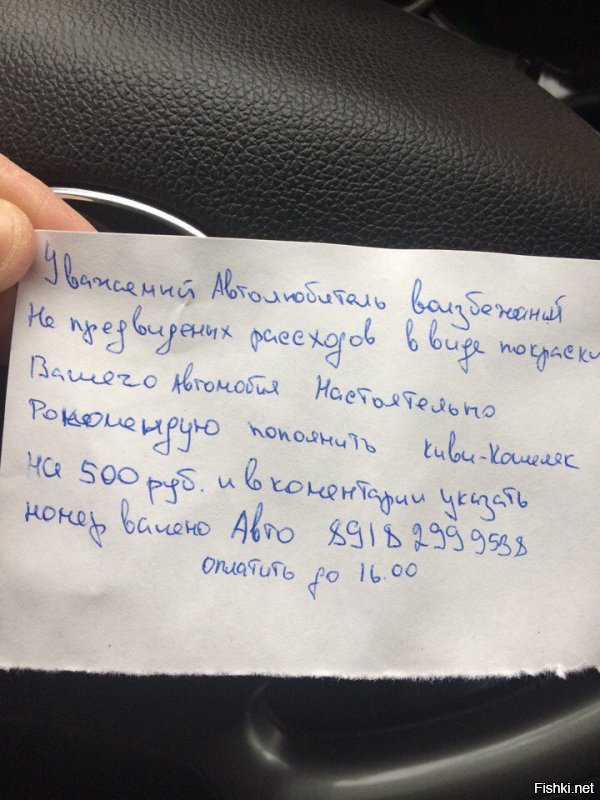 Уважаемий Автолюбитель воизбежаний
Не предвиденых рассходов в виде покраски
Вашего Автомобия Настоятельно
Рокомендую пополнить киви-Кошеляк
на 500 руб. и в коментарии указать
номер вашено Авто 8918 299 9538
оплатить до 16.00
Fishki.net